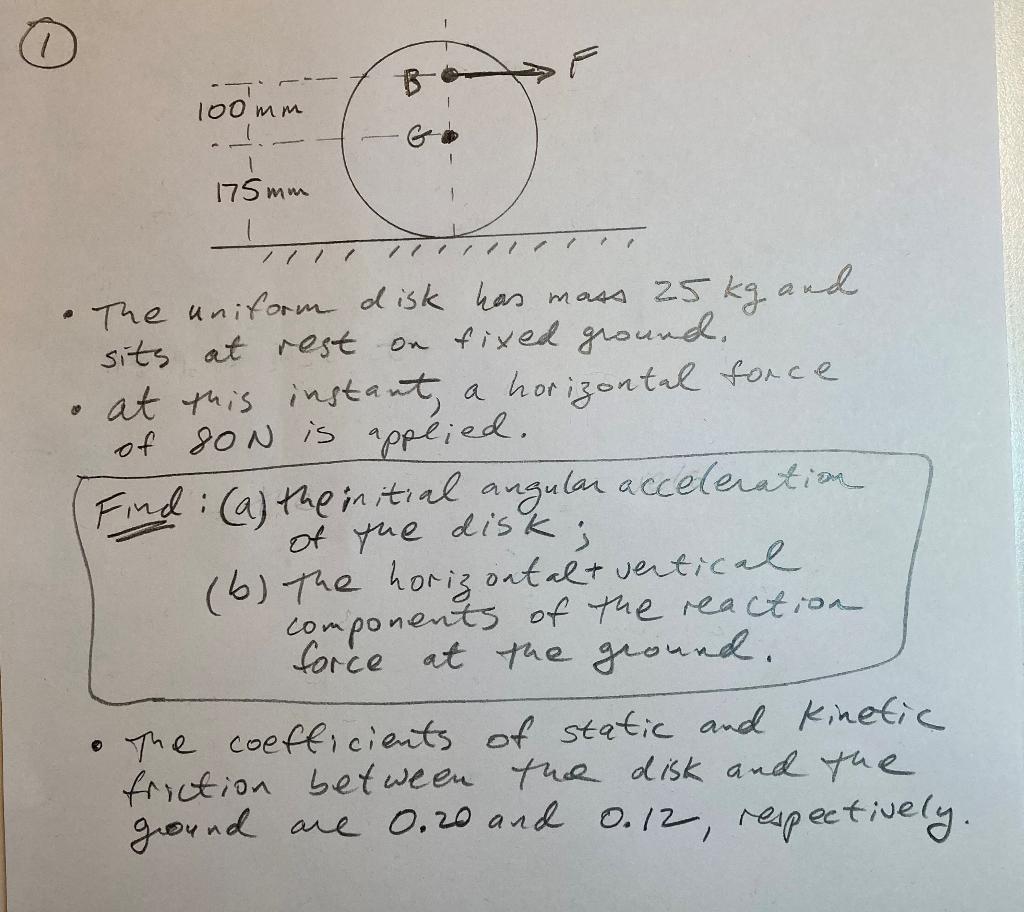 1
B F
100 mm
G
175 mm
• The uniform disk has mass 25 kg and
sits at rest on fixed ground.
• at this instant, a horizontal force
of 80N is applied.
Find: (a) the initial angular acceleration
of the disk;
(b) The horizontal + vertical
components of the reaction
force at the ground.
• The coefficients of static and kinetic
friction between the disk and the
ground are 0.20 and 0.12, respectively.